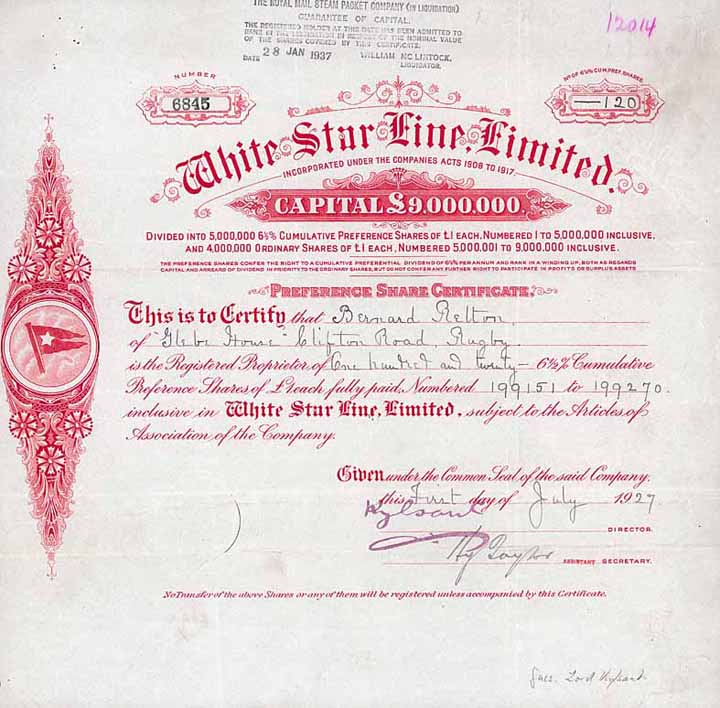 THE ROYAL MAIL STEAM PACKET COMPANY (IN LIQUIDATION)
GUARANTEE OF CAPITAL.
THE REGISTERED HOLDER AT THIS DATE HAS BEEN ADMITTED TO
RANK IN THE LIQUIDATION IN RESPECT OF THE NOMINAL VALUE
OF THE SHARES COVERED BY THIS CERTIFICATE.
DATE 28 JAN 1937 WILLIAM MC LINTOCK,
LIQUIDATOR.
12014
NUMBER
6845
No OF 6½% CUM. PREF. SHARES
—120
White Star Line, Limited.
INCORPORATED UNDER THE COMPANIES ACTS 1908 TO 1917.
CAPITAL £9,000,000.
DIVIDED INTO 5,000,000 6½% CUMULATIVE PREFERENCE SHARES OF £1 EACH, NUMBERED 1 TO 5,000,000 INCLUSIVE,
AND 4,000,000 ORDINARY SHARES OF £1 EACH, NUMBERED 5,000,001 TO 9,000,000 INCLUSIVE.
THE PREFERENCE SHARES CONFER THE RIGHT TO A CUMULATIVE PREFERENTIAL DIVIDEND OF 6½% PER ANNUM AND RANK IN A WINDING UP, BOTH AS REGARDS
CAPITAL AND ARREARS OF DIVIDEND IN PRIORITY TO THE ORDINARY SHARES, BUT DO NOT CONFER ANY FURTHER RIGHT TO PARTICIPATE IN PROFITS OR SURPLUS ASSETS
PREFERENCE SHARE CERTIFICATE.
This is to Certify that Bernard Relton
of "Glebe House" Clifton Road, Rugby
is the Registered Proprietor of One hundred and twenty — 6½% Cumulative
Preference Shares of £1 each, fully paid, Numbered 199151 to 199270
inclusive in White Star Line, Limited, subject to the Articles of
Association of the Company.
Given under the Common Seal of the said Company,
this First day of July 1927
Kylsant
DIRECTOR.
Hy Taylor
ASSISTANT SECRETARY.
No Transfer of the above Shares or any of them will be registered unless accompanied by this Certificate.
Lord Kylsant.